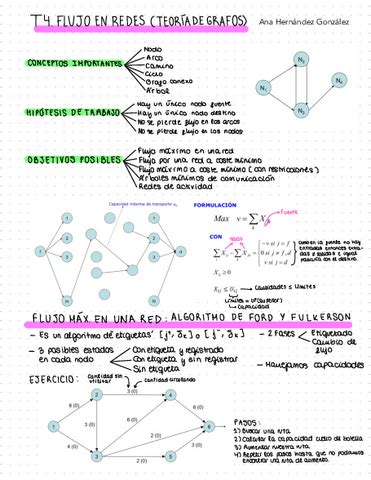 T4. FLUJO EN REDES (TEORÍA DE GRAFOS)
Ana Hernández González
CONCEPTOS IMPORTANTES
Nodo
Arco
Camino
Ciclo
Grafo conexo
Árbol
N₁
N₂
N₃
N₄
HIPÓTESIS DE TRABAJO
Hay un único nodo fuente
Hay un único nodo destino
No se pierde flujo en los arcos
No se pierde flujo en los nodos
OBJETIVOS POSIBLES
Flujo máximo en una red
Flujo por una red a coste mínimo
Flujo máximo a coste mínimo (con restricciones)
Árboles mínimos de comunicación
Redes de actividad
Capacidad máxima de transporte
FORMULACIÓN
Max v =
Fuente
CON
redes
-v si j = f
0 si j ≠ f, d
v si j = d
Xij ≥ 0
Xij ≤ uij
Cantidades ≤ Límites
Capacidad
FLUJO MÁX EN UNA RED: ALGORITMO DE FORD Y FULKERSON
- Es un algoritmo de etiquetas
- 2 Fases
Etiquetado
Cambio de flujo
- 3 posibles estados en cada nodo
Con etiqueta y registrado
Con etiqueta y sin registrar
Sin etiqueta
- Manejamos capacidades
EJERCICIO:
cantidad sin utilizar
cantidad circulando
1
2
3
4
5
6
3 (0)
8 (0)
4 (0)
6 (0)
2 (0)
PASOS:
1) Buscar una ruta
2) Calcular la capacidad cuello de botella
3) Aumentar nuestra ruta
4) Repetir los pasos hasta que no podamos encontrar una ruta de aumento.